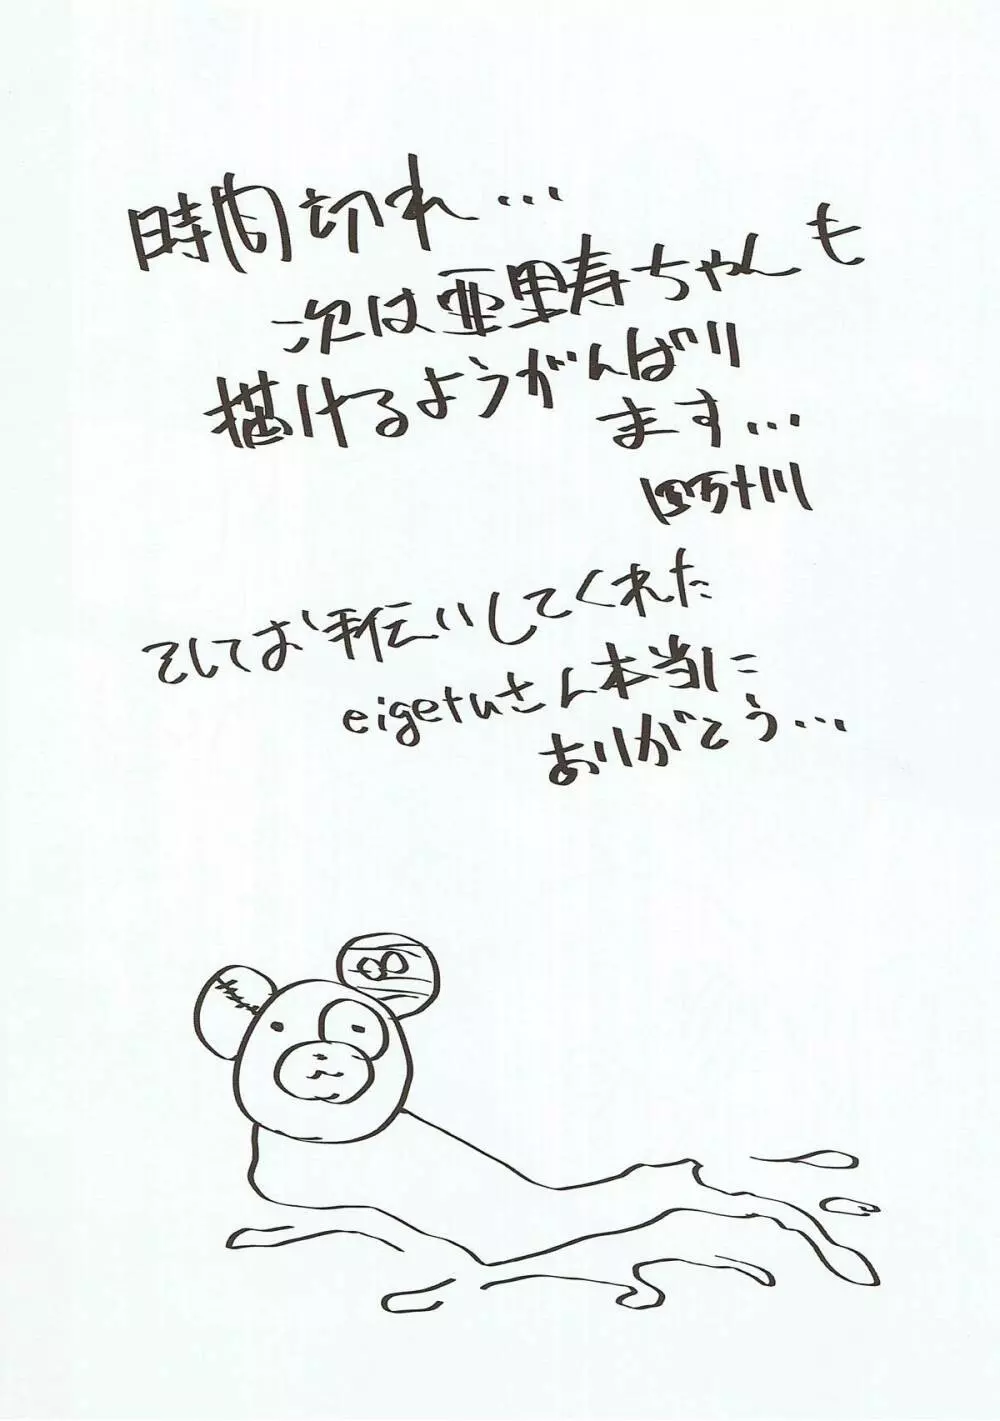 時間切れ…
次は亜里寿ちゃんも
描けるようがんばり
ます…
四万十川
そしてお手伝いしてくれた
eigetuさん本当に
ありがとう…